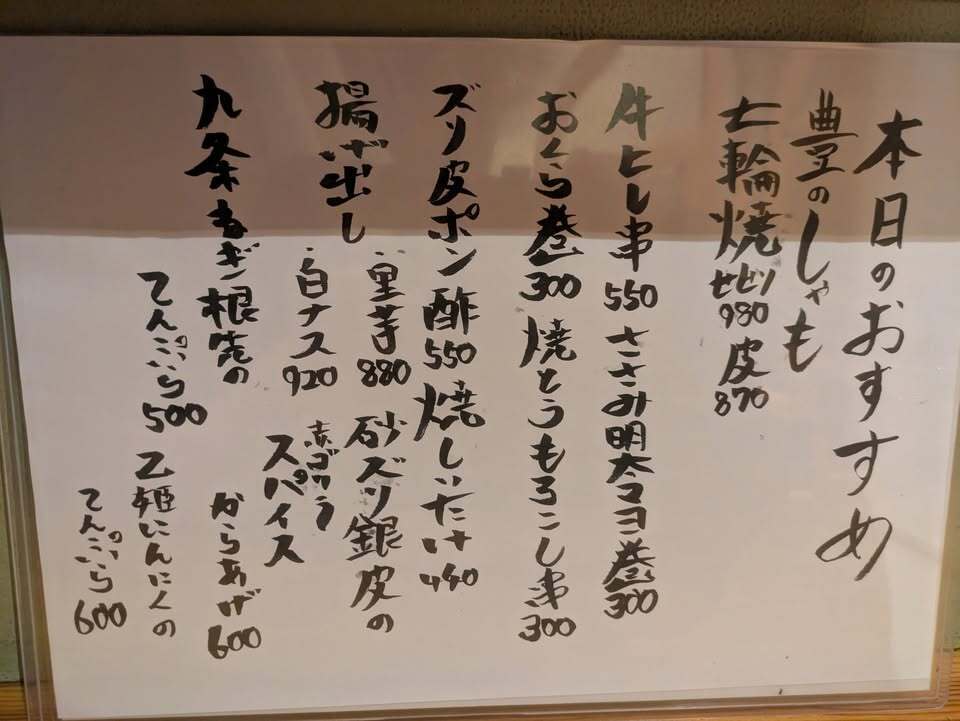 本日のおすすめ
豊のしゃも
七輪焼 セセリ980 皮870
牛ヒレ串550
ささみ明太マヨ巻300
おくら巻300
焼とうもろこし串300
ズリ皮ポン酢550
焼しいたけ440
揚げ出し
・里芋880
・白ナス920
砂ズリ銀皮の
スパイス
からあげ600
九条ねぎ根先の
てんぷら500
乙姫にんにくの
てんぷら600